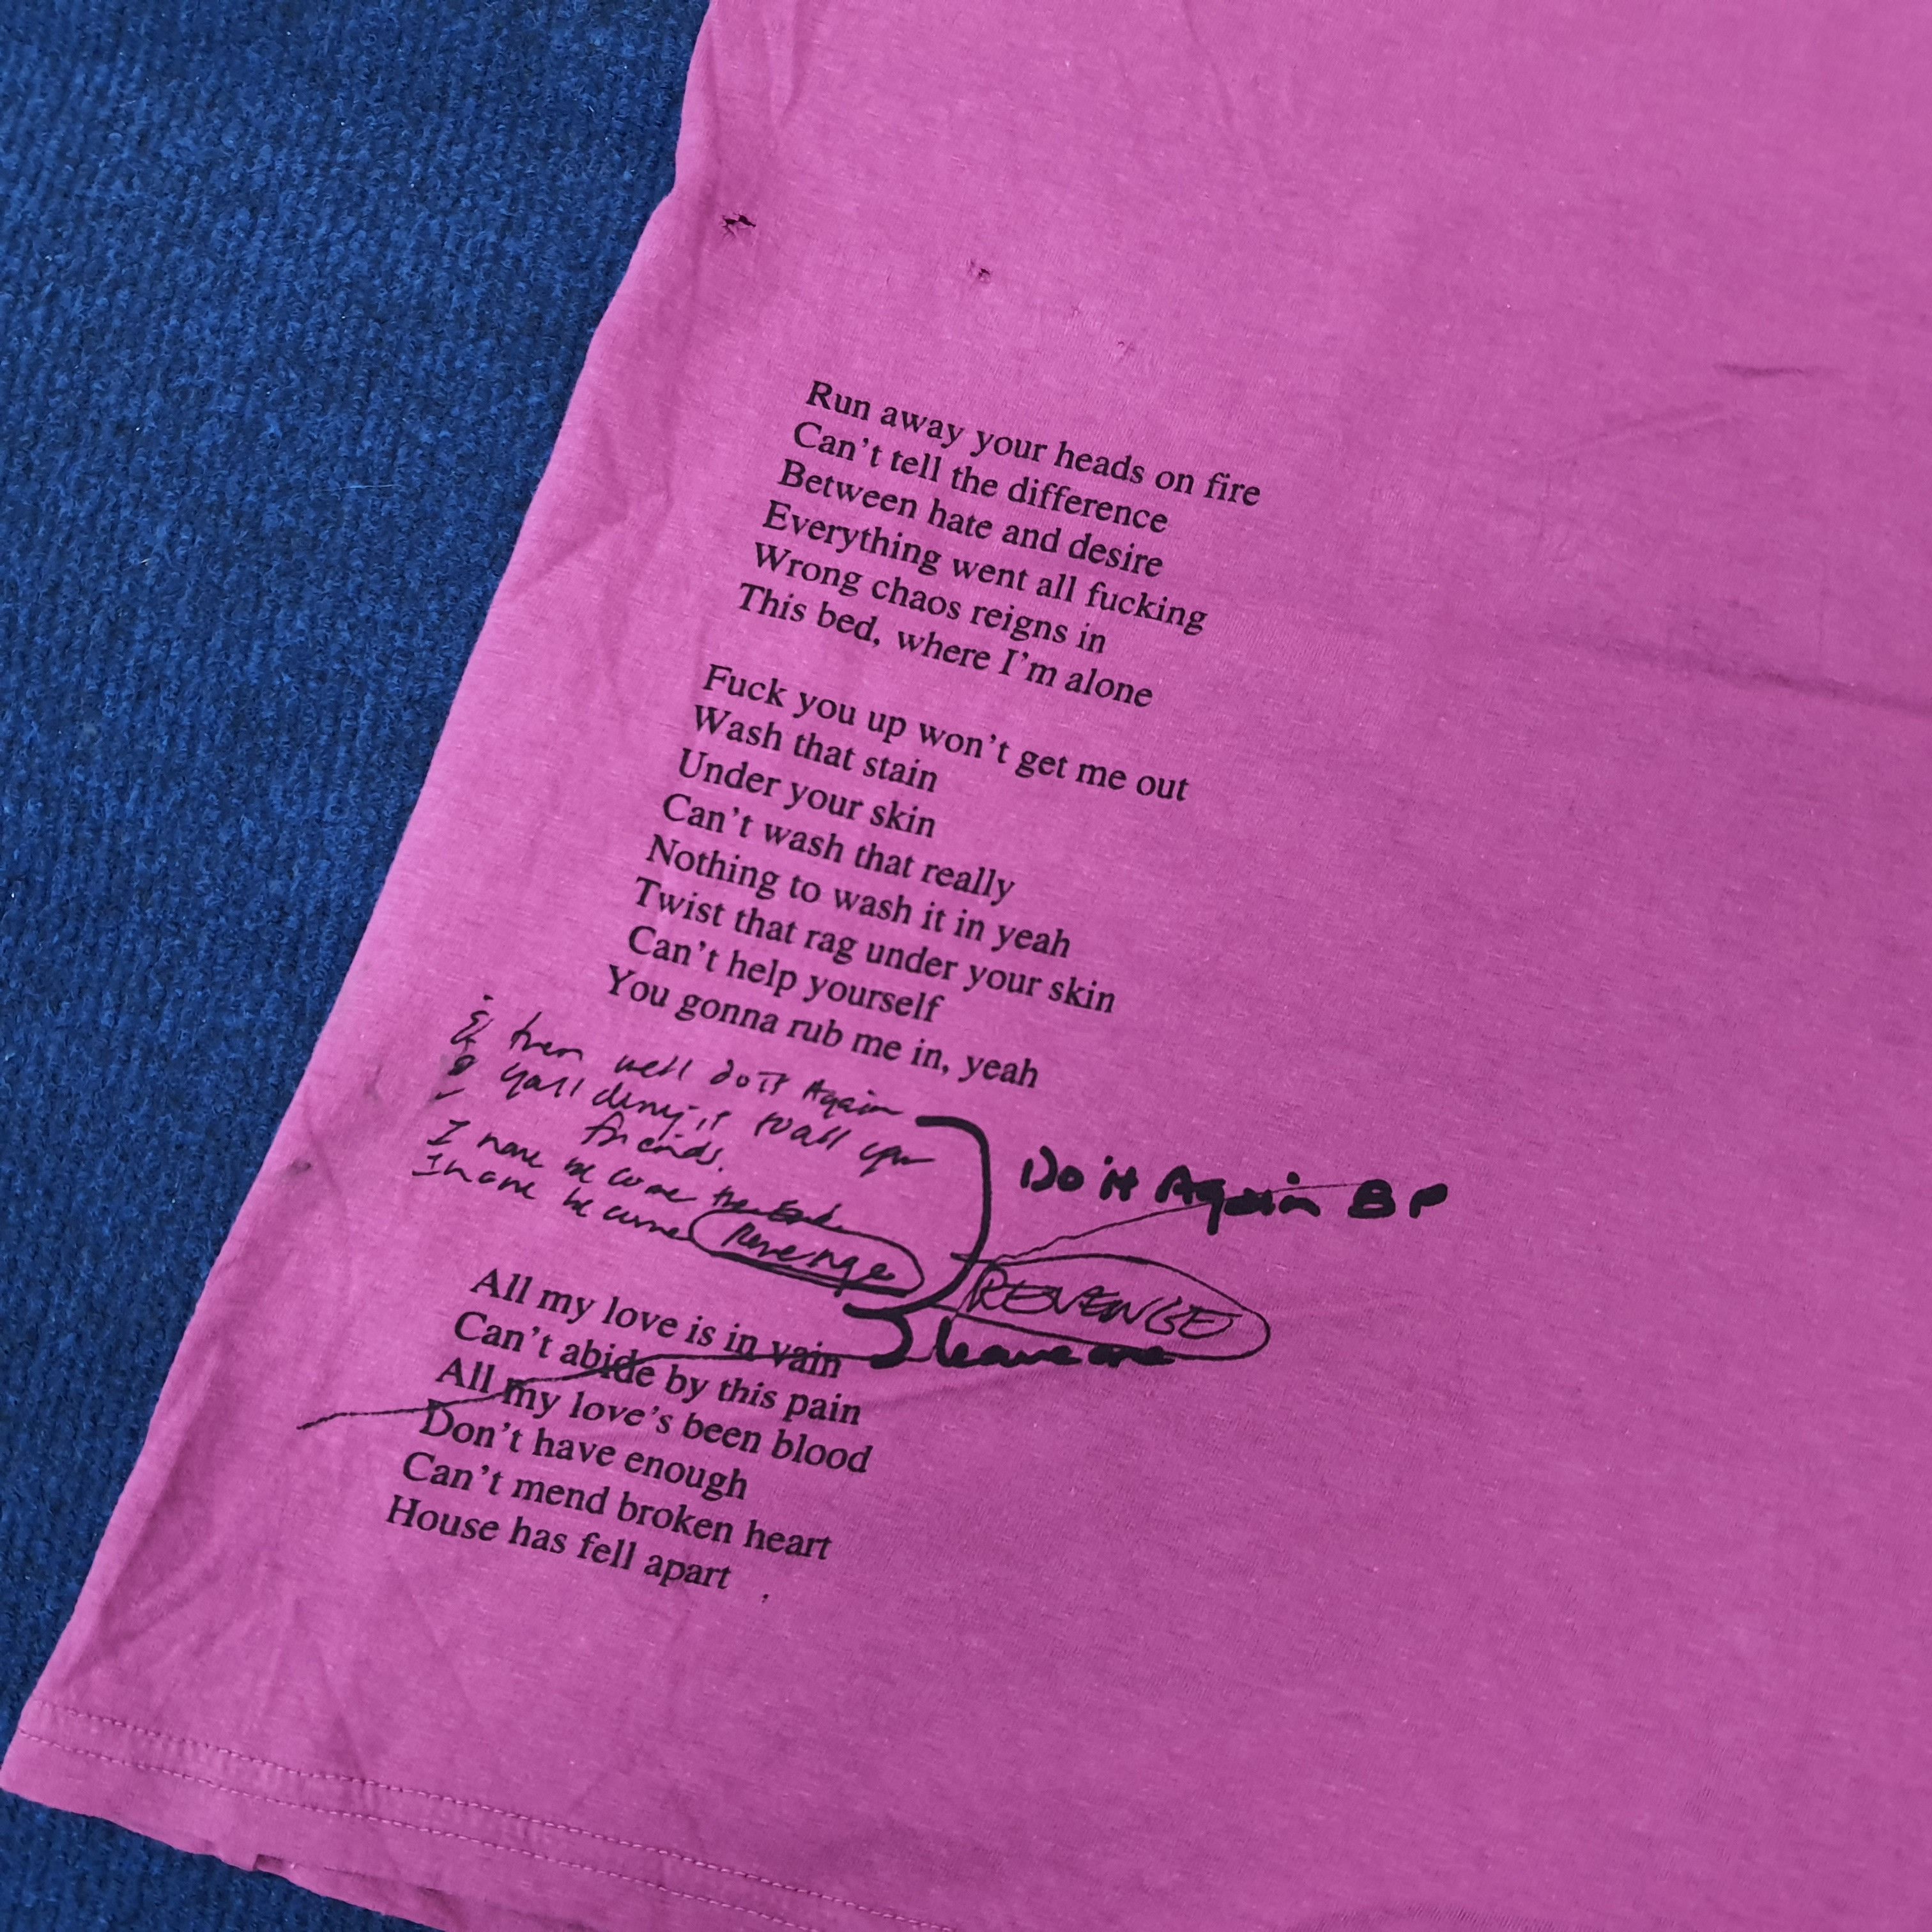 Run away your heads on fire
Can't tell the difference
Between hate and desire
Everything went all fucking
Wrong chaos reigns in
This bed, where I'm alone
Fuck you up won't get me out
Wash that stain
Under your skin
Can't wash that really
Nothing to wash it in yeah
Twist that rag under your skin
Can't help yourself
You gonna rub me in, yeah
& then we'll do it Again
& you'll deny it to all your
friends.
I have become the
I have become Revenge
Do it Again BP
REVENGE
leave one
All my love is in vain
Can't abide by this pain
All my love's been blood
Don't have enough
Can't mend broken heart
House has fell apart